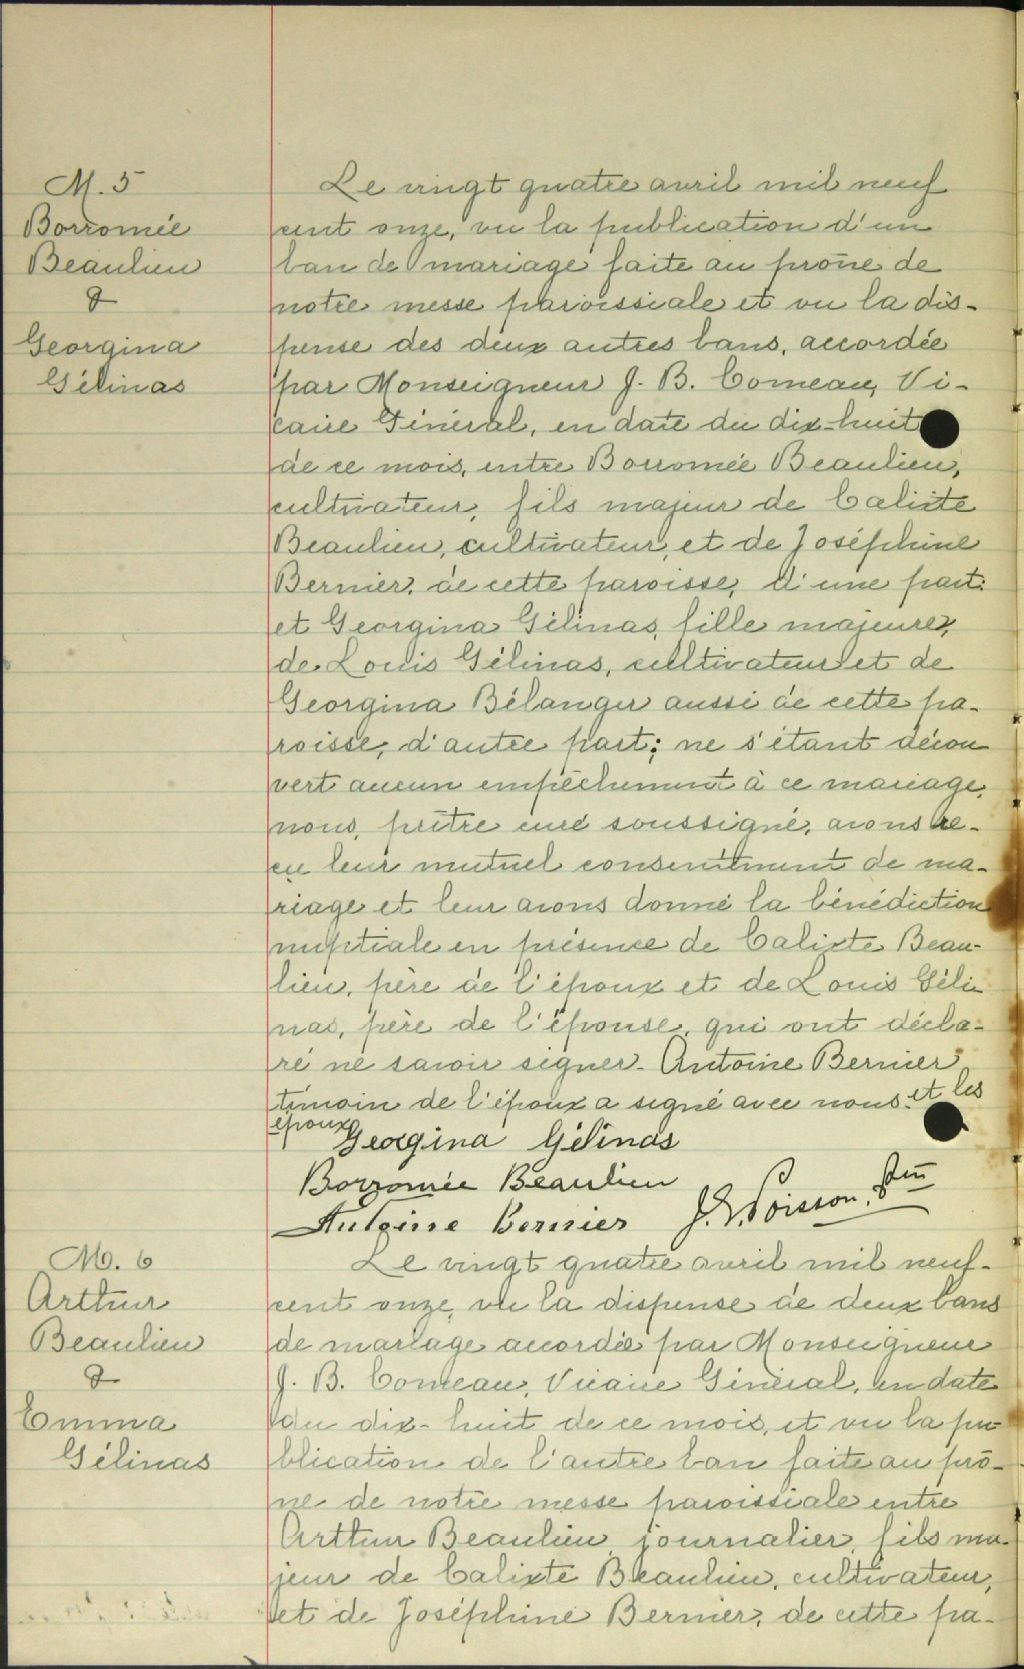 M. 5
Borromée
Beaulieu
&
Georgina
Gélinas
Le vingt quatre avril mil neuf
cent onze, vu la publication d'un
ban de mariage faite au prône de
notre messe paroissiale et vu la dis-
pense des deux autres bans, accordée
par Monseigneur J. B. Comeau, Vi-
caire Général, en date du dix-huit
de ce mois, entre Borromée Beaulieu,
cultivateur, fils majeur de Calixte
Beaulieu, cultivateur, et de Joséphine
Bernier, de cette paroisse, d'une part:
et Georgina Gélinas, fille majeure,
de Louis Gélinas, cultivateur et de
Georgina Bélanger aussi de cette pa-
roisse, d'autre part; ne s'étant décou
vert aucun empêchement à ce mariage,
nous, prêtre curé soussigné, avons re-
çu leur mutuel consentement de ma-
riage et leur avons donné la bénédiction
nuptiale en présence de Calixte Beau-
lieu, père de l'époux et de Louis Géli-
nas, père de l'épouse, qui ont décla-
ré ne savoir signer. Antoine Bernier
témoin de l'époux a signé avec nous et les
époux
Georgina Gélinas
Borromée Beaulieu
Antoine Bernier J. E. Poisson, Ptre
M. 6
Arthur
Beaulieu
&
Emma
Gélinas
Le vingt quatre avril mil neuf-
cent onze, vu la dispense de deux bans
de mariage accordée par Monseigneur
J. B. Comeau, Vicaire Général, en date
du dix-huit de ce mois, et vu la pu-
blication de l'autre ban faite au prô-
ne de notre messe paroissiale entre
Arthur Beaulieu, journalier, fils ma-
jeur de Calixte Beaulieu, cultivateur,
et de Joséphine Bernier, de cette pa-